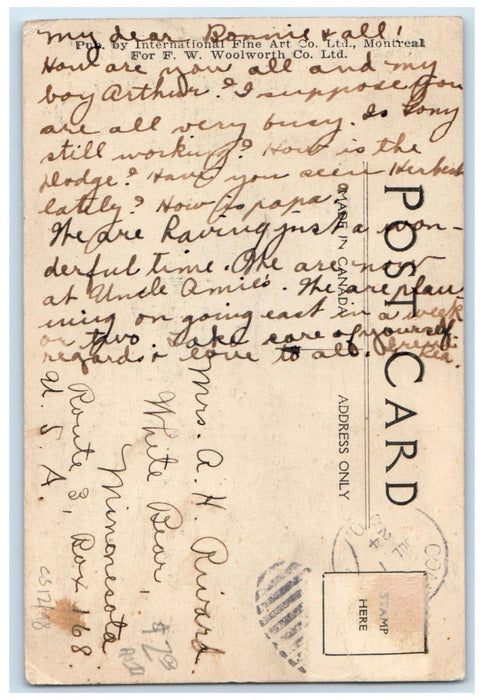 My dear Bonnie & all!
Pub. by International Fine Art Co. Ltd., Montreal
For F. W. Woolworth Co. Ltd.
How are you all and my
boy Arthur? I suppose you
are all very busy. Is Tony
still working? How is the
Dodge? Have you seen Herbert
lately? How is papa.
We are having just a won-
derful time. We are now
at Uncle Amie's. We are plan-
ning on going east in a week
or two. Take care of yourself
regards & love to all.
POST CARD
MADE IN CANADA
ADDRESS ONLY
Mrs. A. H. Rivard
White Bear,
Minnesota
Route 3, Box 168.
U. S. A.
STAMP
HERE